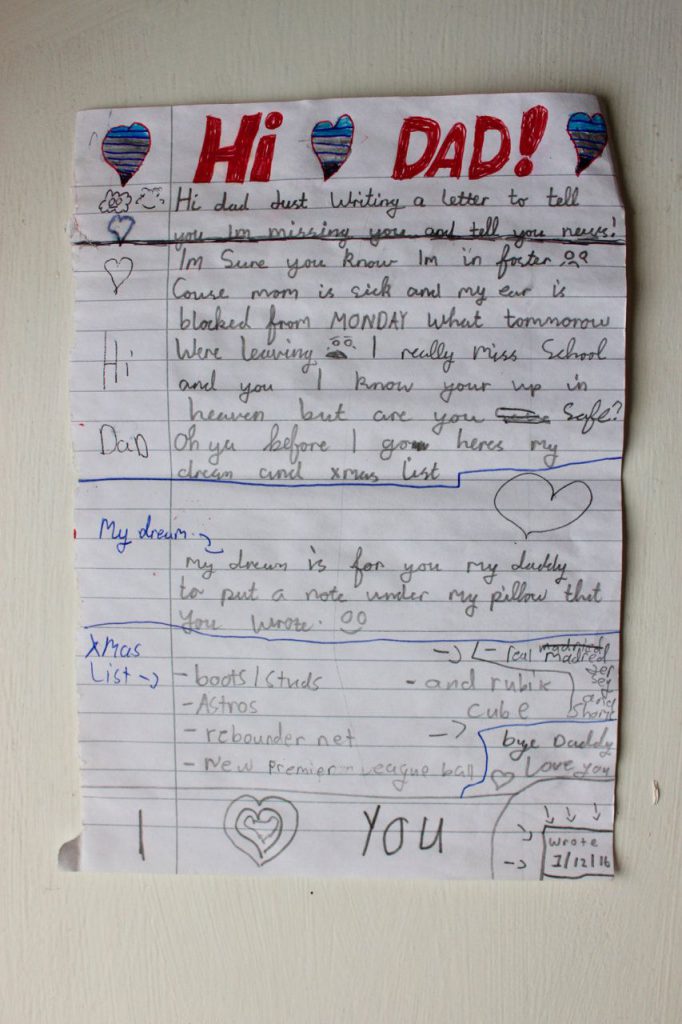 Hi DAD!
Hi dad Just Writing a letter to tell
you Im missing you and tell you news!
Im Sure you know Im in foster
Couse mom is sick and my ear is
blocked from MONDAY What tommorow
Hi
Were leaving I really miss School
and you I know your up in
heaven but are you Safe?
DaD
Oh ya before I go heres my
dream and xmas list
My dream
My dream is for you my daddy
to put a note under my pillow that
you wrote.
Xmas
List
- boots/studs
- Astros
- rebounder net
- New Premier League ball
- real madried
madred
jer
sey
and
shorts
- and rubix
cube
bye Daddy
Love you
I YOU
Wrote
1/12/16